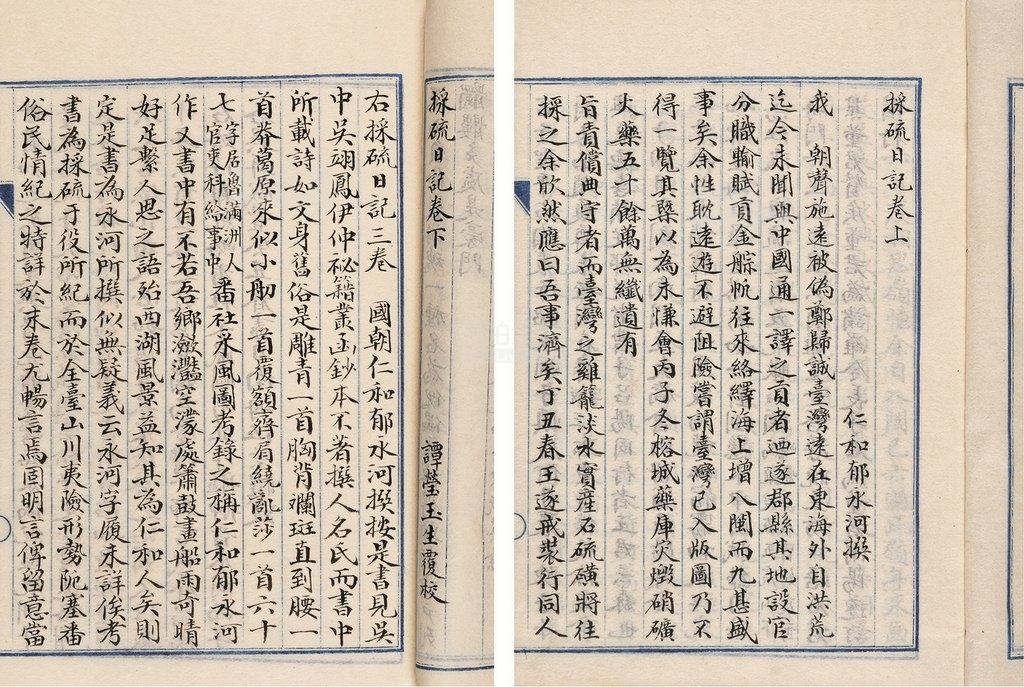 採硫日記卷上
仁和郁永河撰
我　朝聲施遠被偽鄭歸誠臺灣遠在東海外自洪荒
迄今未聞與中國通一譯之貢者迺遂郡縣其地設官
分職輸賦貢金艅帆往來絡繹海上增八閩而九甚盛
事矣余性耽遠遊不避阻險嘗謂臺灣已入版圖乃不
得一覽其槩以為未慊會丙子冬榕城藥庫灾燬硝礦
火藥五十餘萬無纖遺有
旨責償典守者而臺灣之雞籠淡水實産石硫磺將往
採之余欣然應曰吾事濟矣丁丑春王遂戒裝行同人
採硫日記卷下
譚瑩玉生覆校
右採硫日記三卷　國朝仁和郁永河撰按是書見吳
中吳翊鳳伊仲祕籍叢函鈔本不著撰人名氏而書中
所載詩如文身舊俗是雕青一首胸背斕斑直到腰一
首莽葛原來似小舠一首覆額齊眉繞亂莎一首六十
七字居魯滿洲人
官吏科給事中番社采風圖考錄之稱仁和郁永河
作又書中有不若吾鄉瀲灩空濛處簫鼓畫船雨奇晴
好足繫人思之語殆西湖風景益知其為仁和人矣則
定是書為永河所撰似無疑義云永河字履未詳俟考
書為採硫于役所紀而於全臺山川夷險形勢阨塞番
俗民情紀之特詳於末卷尤暢言焉固明言俾留意當